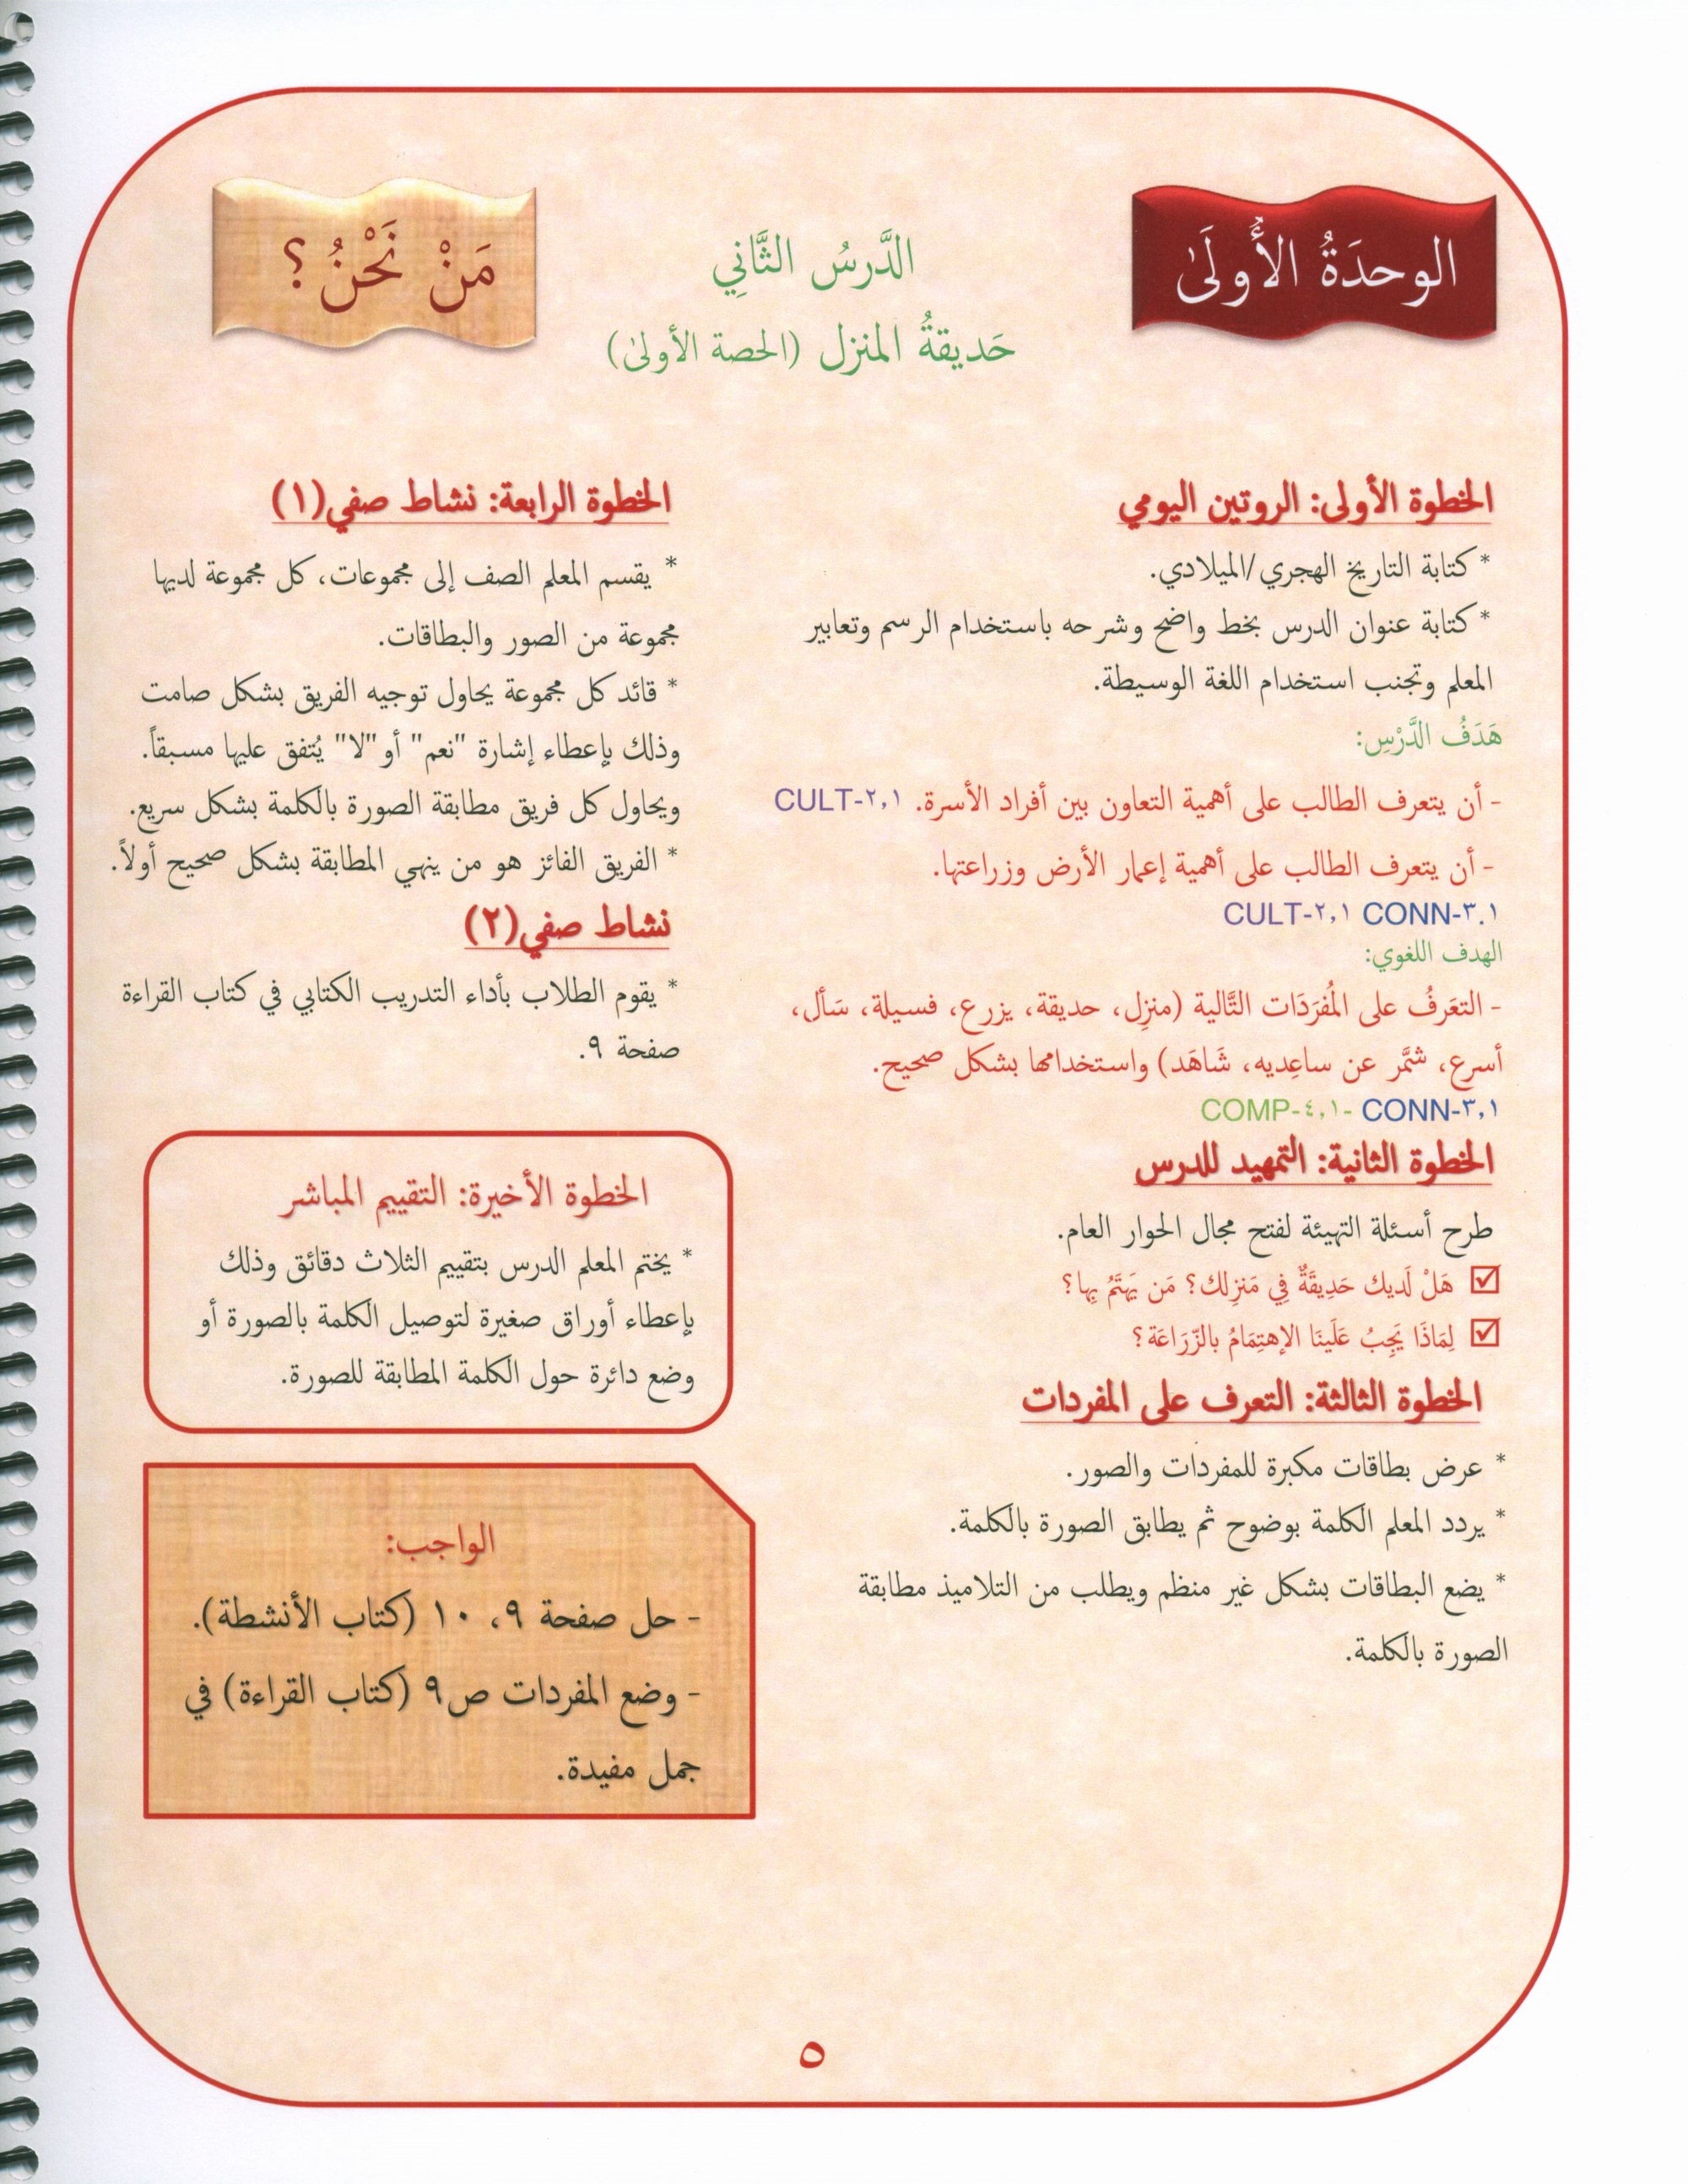 الوحدَةُ الأُولَىٰ
الدَّرسُ الثَّانِي
حَديقةُ المنزل (الحصة الأولىٰ)
مَنْ نَحْنُ؟
الخطوة الأولى: الروتين اليومي
* كتابة التاريخ الهجري/الميلادي.
* كتابة عنوان الدرس بخط واضح وشرحه باستخدام الرسم وتعابير
المعلم وتجنب استخدام اللغة الوسيطة.
هَدَفُ الدَّرْسِ:
- أن يتعرف الطالب على أهمية التعاون بين أفراد الأسرة. CULT-٢,١
- أن يتعرف الطالب على أهمية إعمار الأرض وزراعتها.
CULT-٢,١ CONN-٣.١
الهدف اللغوي:
- التعَرفُ على المُفرَدَات التَّالية (منزِل، حديقة، يزرع، فسيلة، سَأل،
أسرع، شمَّر عن ساعِديه، شَاهَد) واستخدامها بشكل صحيح.
COMP-٤,١- CONN-٣,١
الخطوة الثانية: التمهيد للدرس
طرح أسئلة التهيئة لفتح مجال الحوار العام.
☑ هَلْ لَديك حَدِيقَةٌ فِي مَنزِلك؟ مَن يَهتَمُ بِها؟
☑ لِمَاذَا يَجِبُ عَلَينَا الإهتِمَامُ بالزّرَاعَة؟
الخطوة الثالثة: التعرف على المفردات
* عرض بطاقات مكبرة للمفردات والصور.
* يردد المعلم الكلمة بوضوح ثم يطابق الصورة بالكلمة.
* يضع البطاقات بشكل غير منظم ويطلب من التلاميذ مطابقة
الصورة بالكلمة.
الخطوة الرابعة: نشاط صفي(١)
* يقسم المعلم الصف إلى مجموعات، كل مجموعة لديها
مجموعة من الصور والبطاقات.
* قائد كل مجموعة يحاول توجيه الفريق بشكل صامت
وذلك بإعطاء إشارة "نعم" أو "لا" يُتفق عليها مسبقاً.
ويحاول كل فريق مطابقة الصورة بالكلمة بشكل سريع.
* الفريق الفائز هو من ينهي المطابقة بشكل صحيح أولاً.
نشاط صفي(٢)
* يقوم الطلاب بأداء التدريب الكتابي في كتاب القراءة
صفحة ٩.
الخطوة الأخيرة: التقييم المباشر
* يختم المعلم الدرس بتقييم الثلاث دقائق وذلك
بإعطاء أوراق صغيرة لتوصيل الكلمة بالصورة أو
وضع دائرة حول الكلمة المطابقة للصورة.
الواجب:
- حل صفحة ٩، ١٠ (كتاب الأنشطة).
- وضع المفردات ص٩ (كتاب القراءة) في
جمل مفيدة.
٥